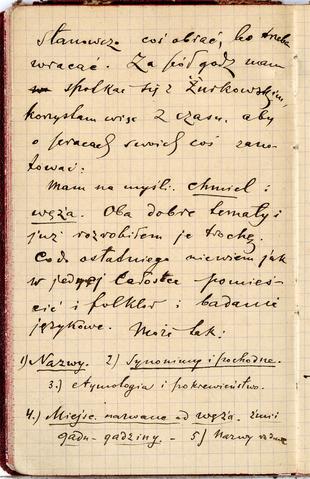 stanowczo coś obrać, bo trzeba
wracać. Za pół godz mam
spotkać się z Żurkowskim,
korzystam więc z czasu, aby
o pracach swoich coś zano-
tować:
Mam na myśli: chmiel i
węża. Oba dobre tematy i
już rozrobiłem je trochę.
Co do ostatniego niewiem jak
w jednej całostce pomieś-
cić i folklor i badanie
językowe. Może tak:
1) Nazwy. 2) Synonimy i pochodne.
3.) etymologia i pokrewieństwo.
4.) Miejsc. nazwane od węża. żmii
gadu-gadziny. - 5) Nazwy